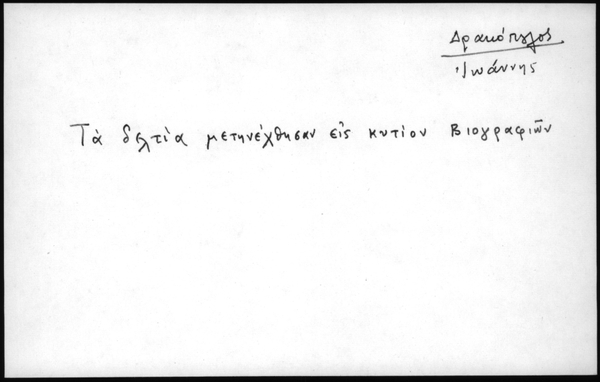 Δρακόπουλος
Ἰωάννης
Τὰ δελτία μετηνέχθησαν εἰς κυτίον Βιογραφιῶν